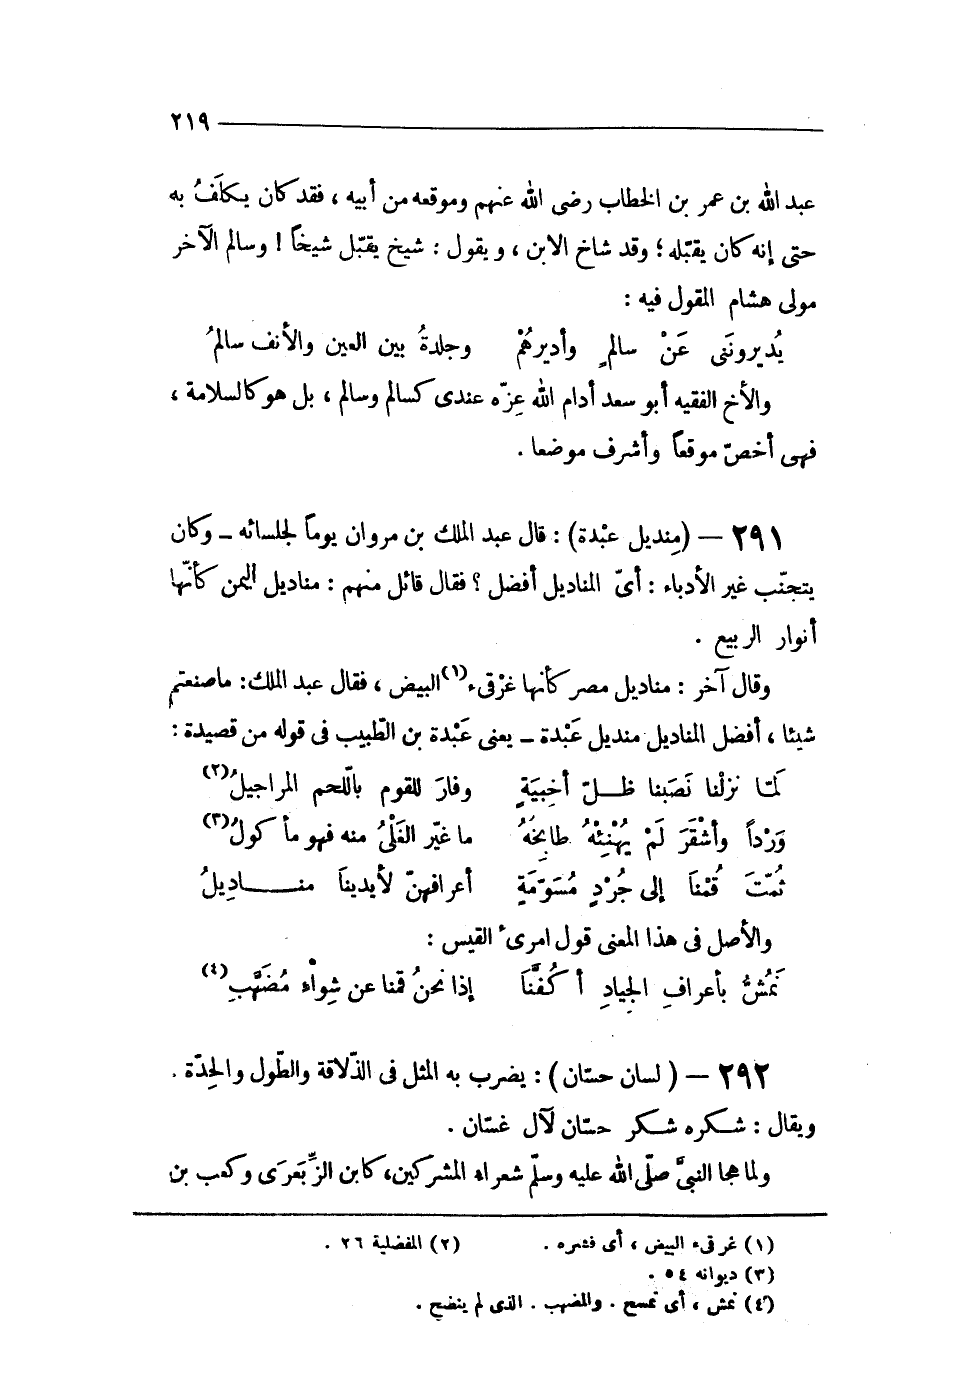 ٢١٩
عبد الله بن عمر بن الخطاب رضى الله عنهم وموقعه من أبيه ، فقد كان يكلَفُ به
حتى إنه كان يقبّله ؛ وقد شاخ الابن ، ويقول : شيخ يقبّل شيخاً ! وسالم الآخر
مولى هشام المقول فيه :
يُديرونَنى عَنْ سالمٍ وأديرهُمْ وجلدةُ بين العين والأنف سالمُ
والأخ الفقيه أبو سعد أدام الله عِزّه عندى كسالم وسالم ، بل هو كالسلامة ،
فهى أخصّ موقعاً وأشرف موضعا .
٢٩١ — (مِنديل عبْدة) : قال عبد الملك بن مروان يوماً لجلسائه ـ وكان
يتجنّب غير الأدباء : أىّ المناديل أفضل ؟ فقال قائل منهم : مناديل اليمن كأنّها
أنوار الربيع .
وقال آخر : مناديل مصر كأنها غرْقىء(١) البيض ، فقال عبد الملك: ماصنعتم
شيئا ، أفضل المناديل منديل عَبْدة ـ يعنى عَبْدة بن الطّبيب فى قوله من قصيدة :
لمّا نزلْنا نَصَبنا ظلّ أخبيَةٍ وفارَ للقوم باللّحم المراجيلُ(٢)
وَرْداً وأشْقَرَ لَمْ يُهْنِئْهُ طابخَهُ ما غيّر الغَلْىُ منه فهو مأكولُ(٣)
ثُمّتَ قُمْناَ إلى جُرْدٍ مُسَوّمَةٍ أعرافهنّ لأيديناَ مناديلُ
والأصل فى هذا المعنى قول امرىء القيس :
نَمُشُّ بأعرافِ الجيادِ أكُفَّنَا إذا نحنُ قمنا عن شِواْءِ مُضَهَّبِ(٤)
٢٩٢ — ( لسان حسّان ) : يضرب به المثل فى الذّلاقة والطّول والحِدّة .
ويقال : شكره شكر حسّان لآل غسّان .
ولما هجا النبىَّ صلّى الله عليه وسلّم شعراء المشركين، كابن الزِّبَعرَى وكعب بن
(١) غرقىء البيض ، أى قشره . (٢) المفضلية ٢٦ .
(٣) ديوانه ٥٤ .
(٤) نمش ، أى نمسح . والمضهب . الذى لم ينضج .